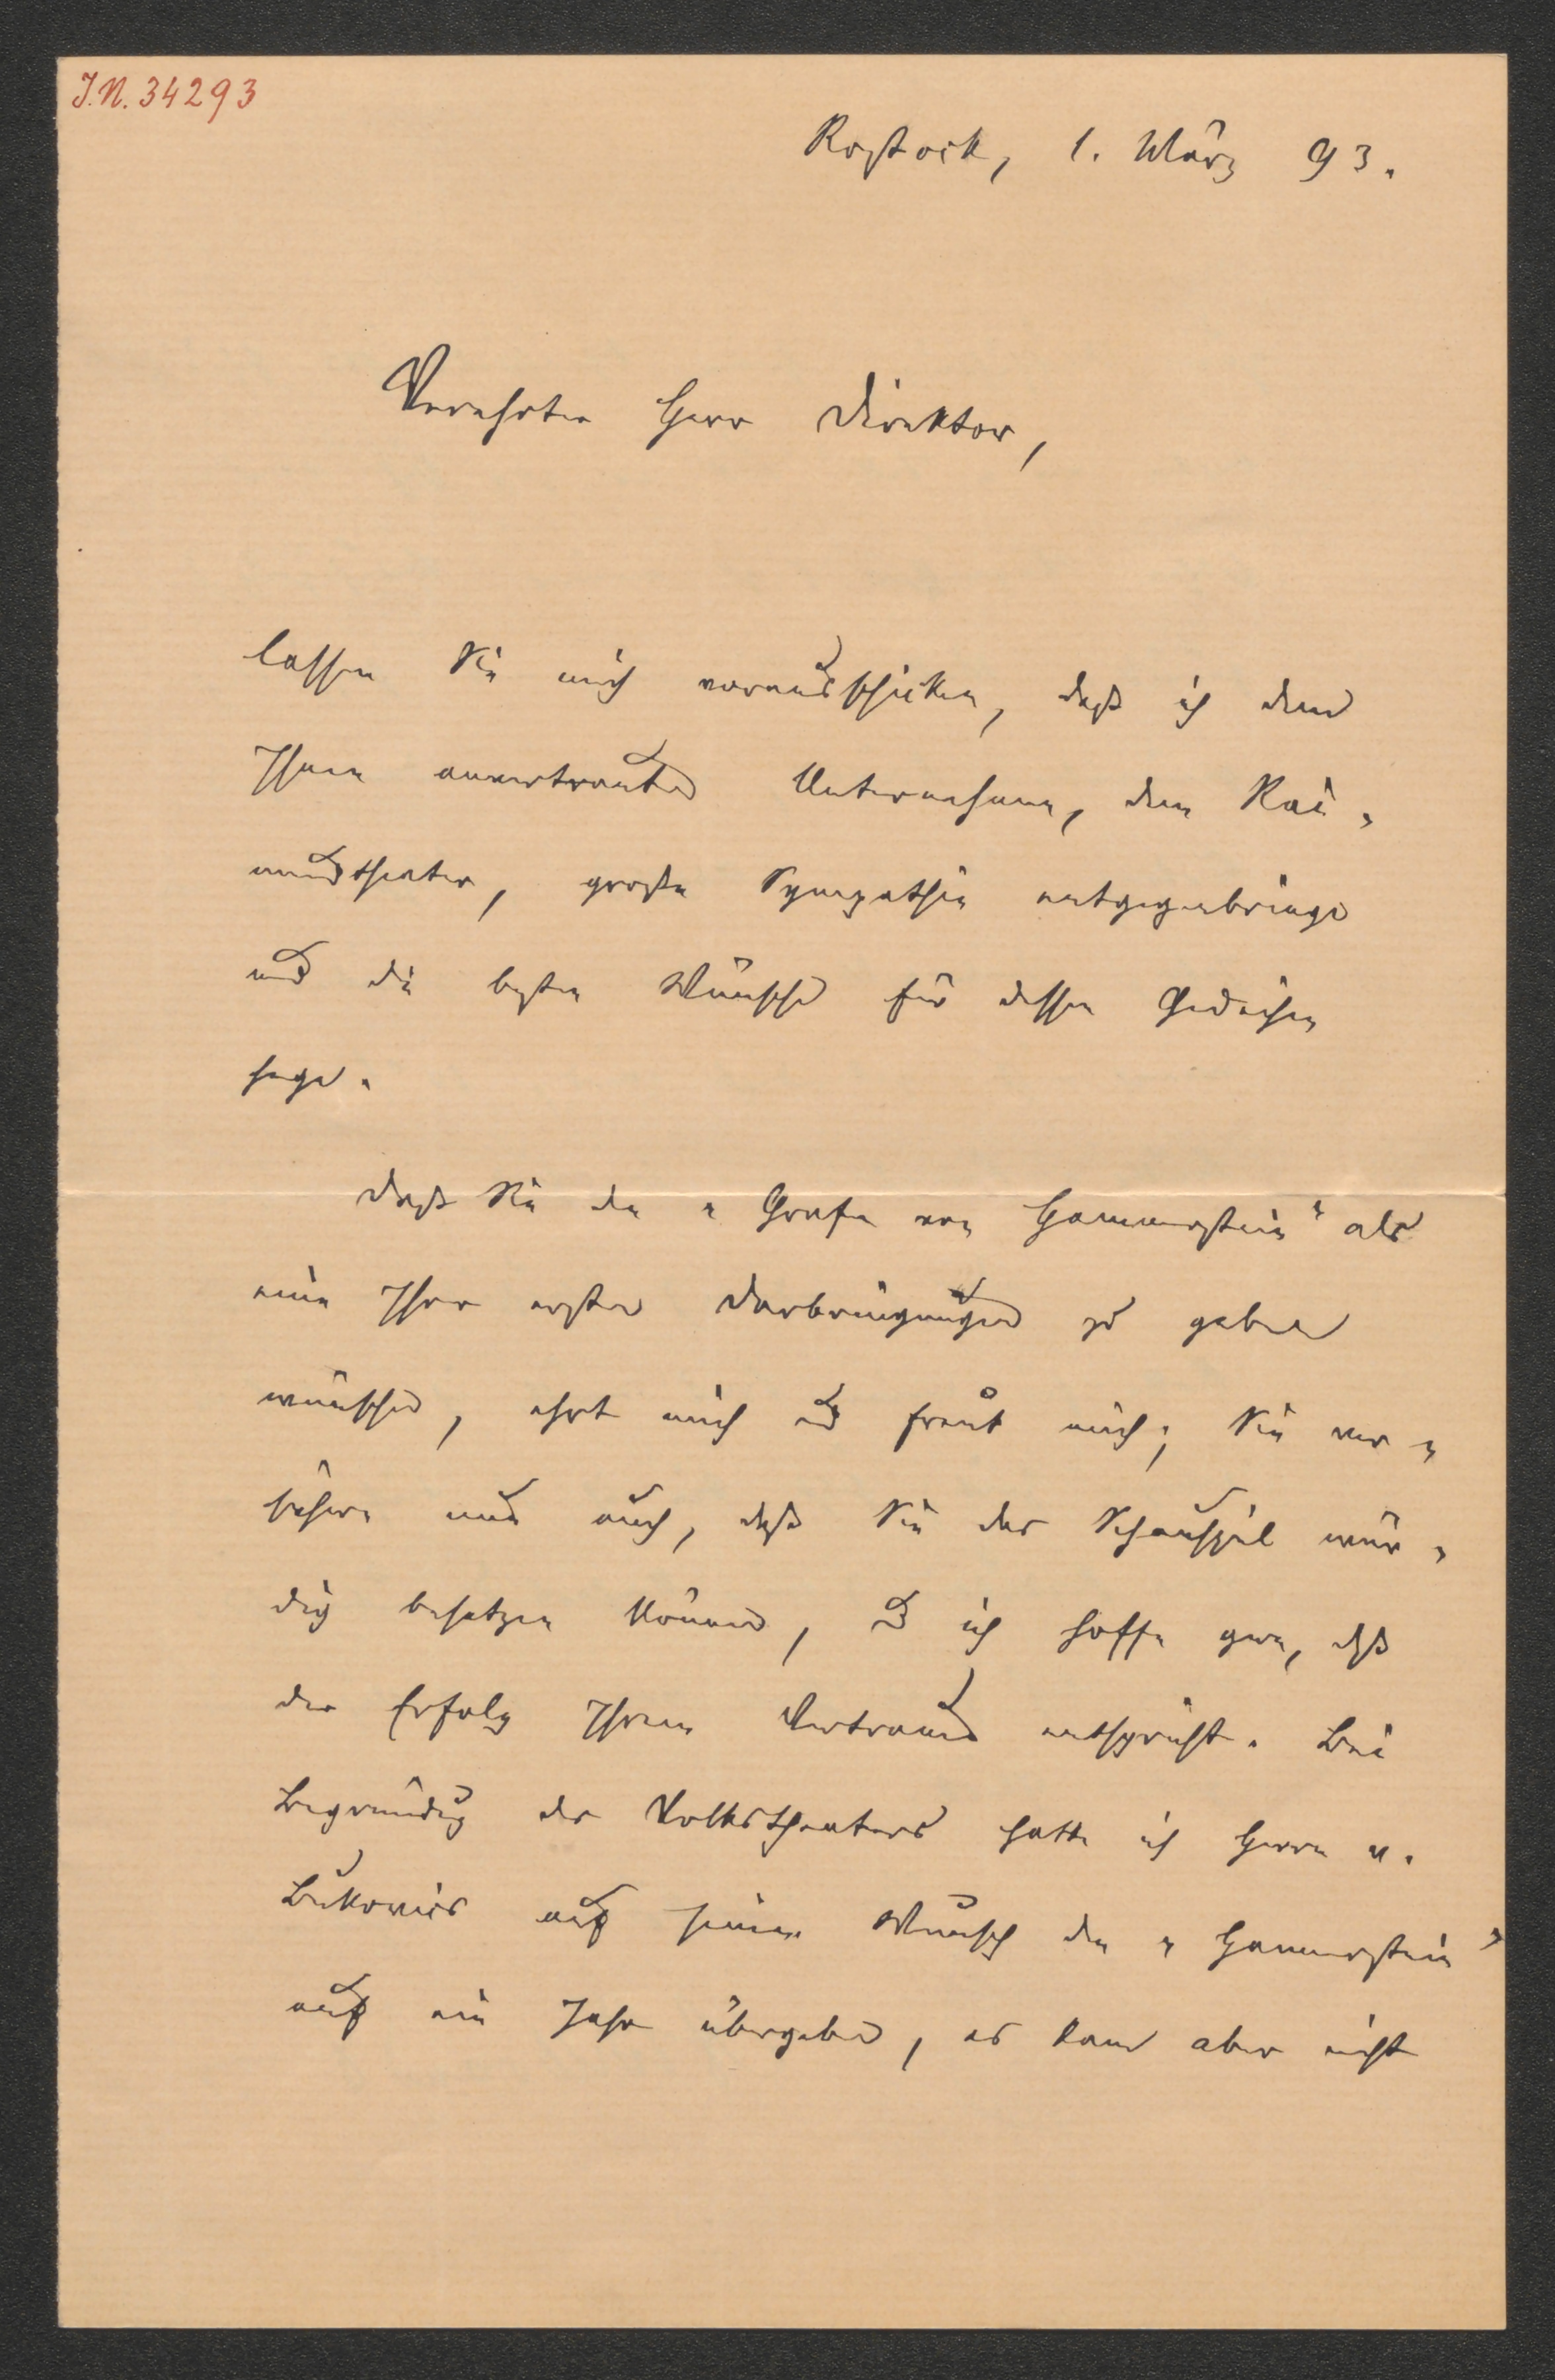 J.N. 34293
Rostock, 1. März 93.
Verehrter Herr Direktor,
lassen Sie mich vorausschicken, daß ich dem
Ihnen anvertrauten Unternehmen, dem Rai-
mundtheater, große Sympathien entgegenbringe
und die besten Wünsche für dessen Gedeihen
hege.
Daß Sie den „Grafen von Hammerstein" als
eine Ihrer ersten Darbringungen zu geben
wünschen, ehrt mich und freut mich; Sie ver-
sichern mir auch, daß Sie das Schauspiel wür-
dig besetzen können, und ich hoffe gern, daß
der Erfolg Ihrem Vertrauen entspricht. Bei
Begründung des Volkstheaters hatte ich Herrn v.
Bukovics auf seinen Wunsch den „Hammerstein"
auf ein Jahr übergeben, es kam aber nicht